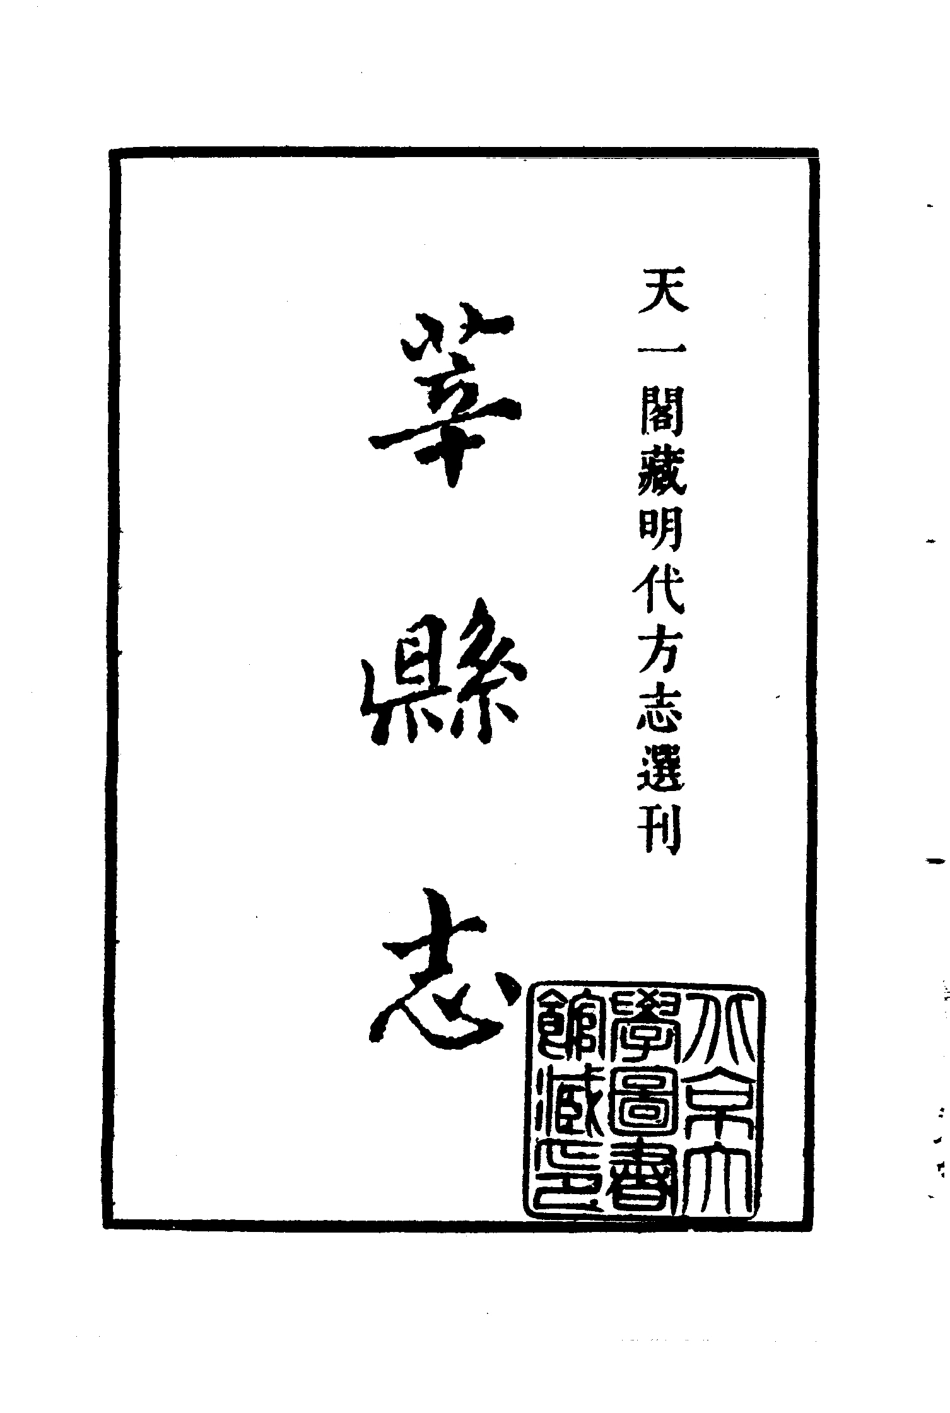 天一閣藏明代方志選刊
莘縣志
北京大
學圖書
館藏印